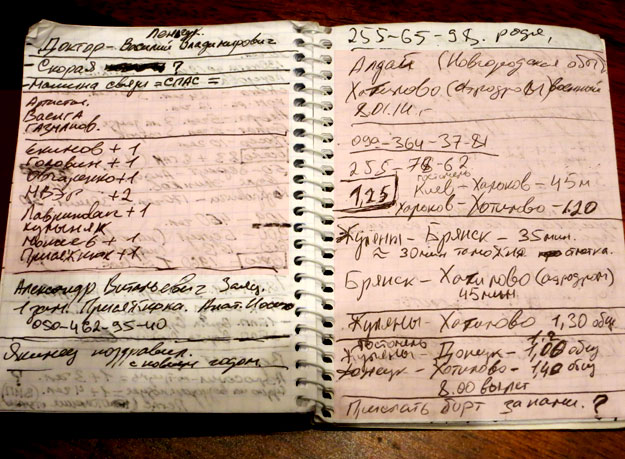 Доктор - Василий Владимирович
Скорая ?
Машина связи = СПАС =
Артисты.
Васига
Газманов.
Екимов + 1
Головин + 1
+1
НВЭР +2
Лавринович + 1
+ 1
Присяжнюк +1
Александр Витальевич Заяц.
1 грам. Присяжнюка. Анат. Иосип
050-462-95-40
Якинец поздравил.
с новым годом.
255-65-98. родя,
(Новгородская обл)
Хотилово (аэродром) военный
8.01.14. г
090-364-37-81
255-78-62
1,25
Киев - Харьков - 45 м
Харьков - Хотилово - 1.20
Жуляны - Брянск - 35 мин.
≈ 30 мин таможня
Брянск - Хотилово (аэродром)
45 мин
Жуляны - Хотилово 1,30 общ
Жуляны - Донецк - 1,00 общ
Донецк - Хотилово - 1,40 общ
8.00 вылет
Прислать борт за нами. ?